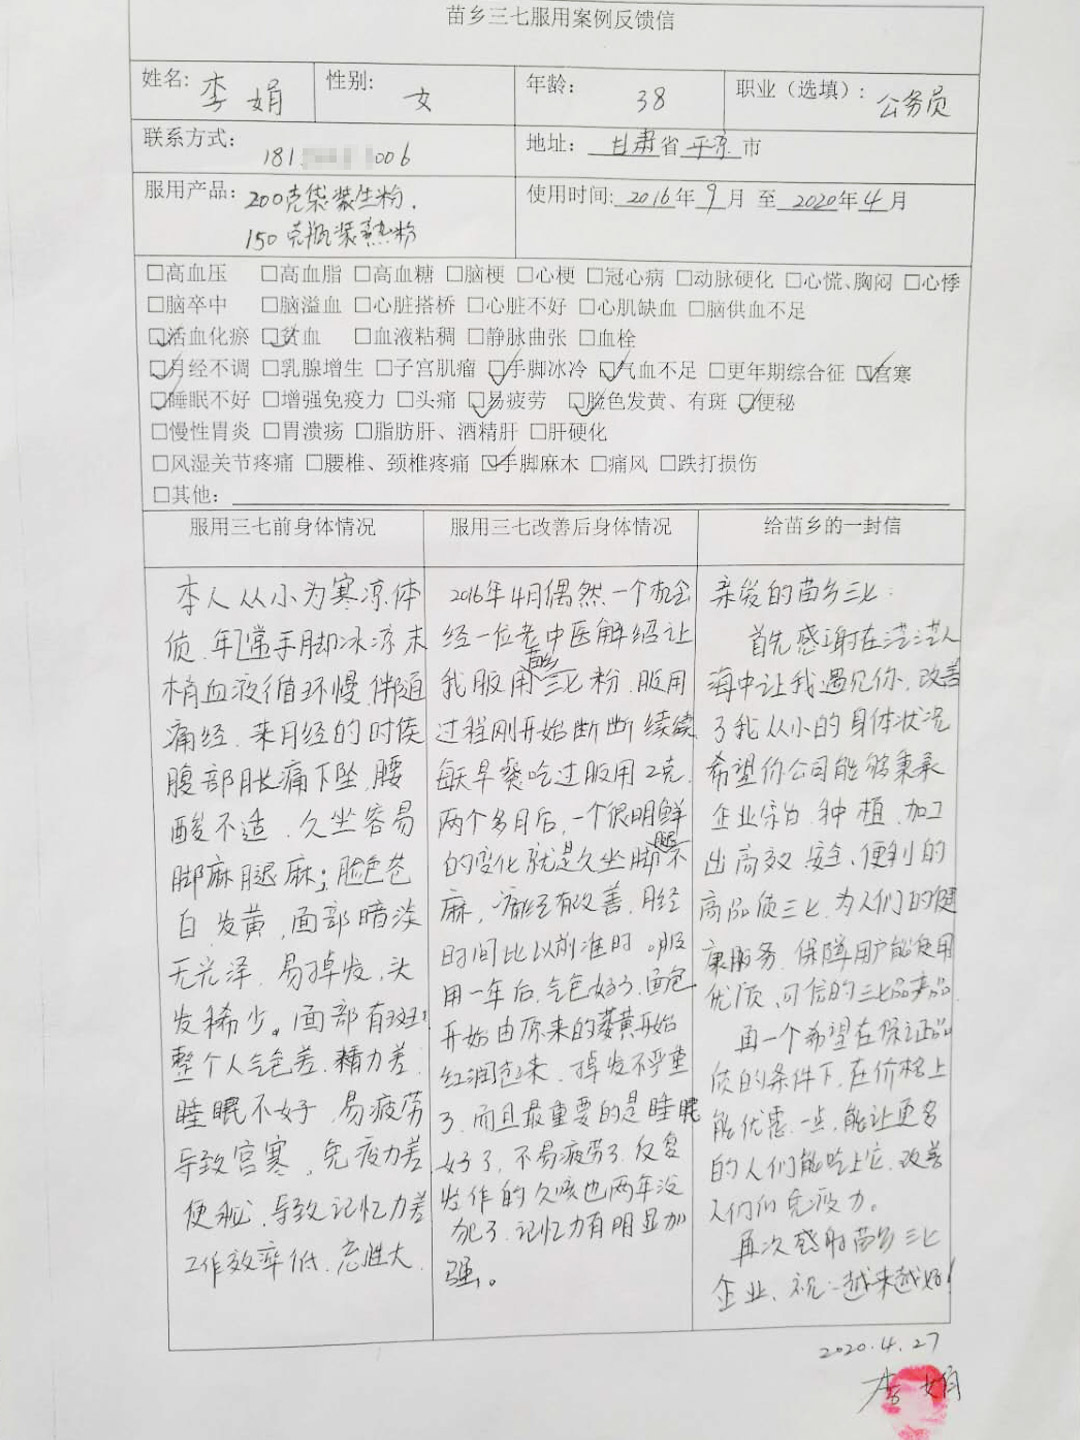 苗乡三七服用案例反馈信
姓名: 李娟 性别: 女 年龄: 38 职业（选填）: 公务员
联系方式: 181 006 地址: 甘肃省平凉市
服用产品: 200克袋装生粉. 使用时间: 2016年9月至2020年4月
150克瓶装熟粉
□高血压 □高血脂 □高血糖 □脑梗 □心梗 □冠心病 □动脉硬化 □心慌、胸闷 □心悸
□脑卒中 □脑溢血 □心脏搭桥 □心脏不好 □心肌缺血 □脑供血不足
☑活血化瘀 ☑贫血 □血液粘稠 □静脉曲张 □血栓
☑月经不调 □乳腺增生 □子宫肌瘤 ☑手脚冰冷 ☑气血不足 □更年期综合征 ☑宫寒
☑睡眠不好 □增强免疫力 □头痛 ☑易疲劳 ☑脸色发黄、有斑 ☑便秘
□慢性胃炎 □胃溃疡 □脂肪肝、酒精肝 □肝硬化
□风湿关节疼痛 □腰椎、颈椎疼痛 ☑手脚麻木 □痛风 □跌打损伤
□其他:
服用三七前身体情况
本人从小为寒凉体
质.常手脚冰凉末
梢血液循环慢,伴随
痛经.来月经的时候
腹部胀痛下坠,腰
酸不适.久坐容易
脚麻腿麻;脸色苍
白.发黄,面部暗淡
无光泽.易掉发,头
发稀少。面部有斑.
整个人气色差.精力差.
睡眠不好.易疲劳
导致宫寒,免疫力差
便秘.导致记忆力差
工作效率低.急性大.
服用三七改善后身体情况
2016年4月偶然一个机会
经一位老中医介绍让
我服用苗乡三七粉.服用
过程刚开始断断续续
每天早餐吃过服用2克.
两个多月后,一个很明鲜
的变化就是久坐脚腿不
麻,痛经有改善,月经
时间比以前准时。服
用一年后,气色好了.面色
开始由原来的萎黄开始
红润起来,掉发不严重
了.而且最重要的是睡眠
好了,不易疲劳了.反复
发作的久咳也两年没
犯了.记忆力有明显加
强。
给苗乡的一封信
亲爱的苗乡三七:
首先感谢在茫茫人
海中让我遇见你.改善
了我从小的身体状况
希望你公司能够秉承
企业宗旨.种植.加工
出高效.安全、便利的
高品质三七.为人们的健
康服务.保障用户能使用
优质、可信的三七品产品.
再一个希望在保证品
质的条件下,在价格上
能优惠一点,能让更多
的人们能吃上它.改善
人们的免疫力。
再次感谢苗乡三七
企业、祝:越来越好!
2020.4.27
李娟